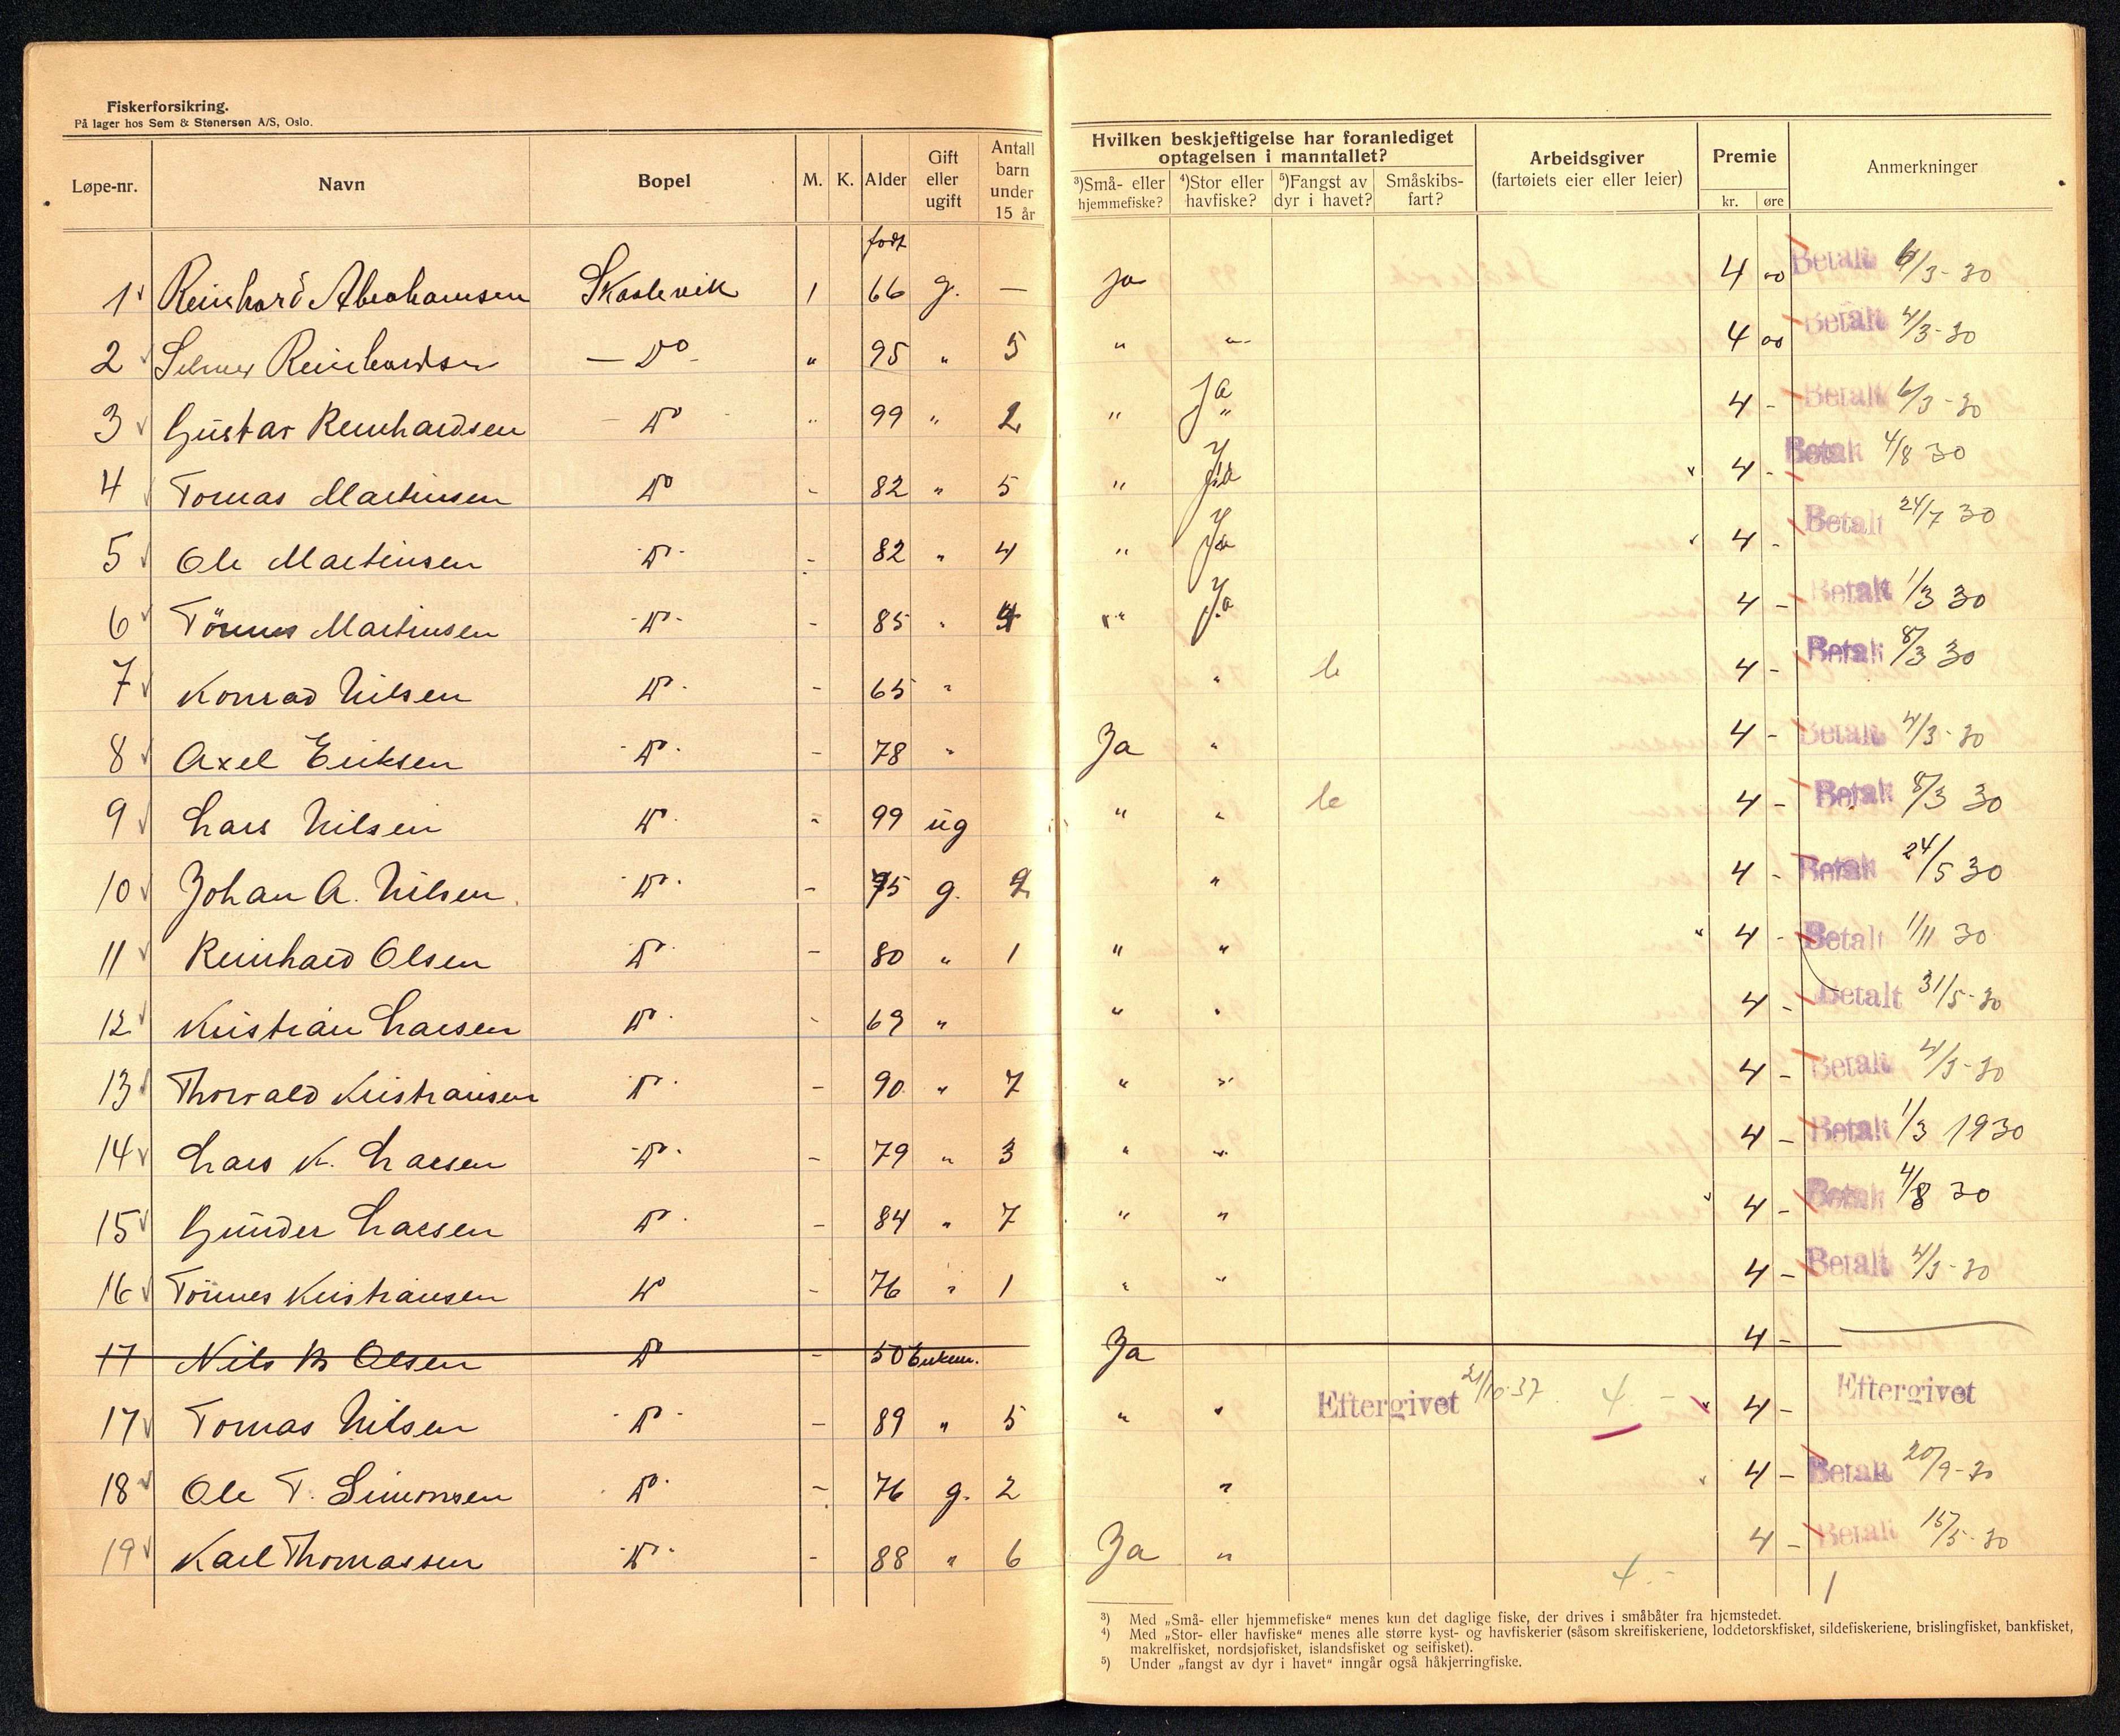 Fiskerforsikring.
På lager hos Sem & Stenersen A/S, Oslo.
Løpe-nr. Navn Bopel M. K. Alder Gift eller ugift Antall barn under 15 år
Hvilken beskjeftigelse har foranlediget optagelsen i manntallet?
³)Små- eller hjemmefiske? ⁴)Stor eller havfiske? ⁵)Fangst av dyr i havet? Småskibs-fart?
Arbeidsgiver (fartøiets eier eller leier)
Premie kr. øre
Anmerkninger
født
1 Reinhard Abrahamsen 1 66 g. — Ja 4 00 Betalt 6/3-30
2 Selmer Reinhardsen — Do - " 95 " 5 " " 4 00 Betalt 4/3-30
3 Gustav Reinhardsen Do " 99 " 2 " Ja " 4 - Betalt 6/3-30
4 Tomas Martinsen Do - 82 " 5 " Ja 4 - Betalt 4/8 30
5 Ole Martinsen Do - 82 " 4 " Ja 4 - Betalt 24/7 30
6 Tönnes Martinsen Do - 85 " 4 " Ja 4 - Betalt 1/3 30
7 Konrad Nilsen Do - 65 " " 4 - Betalt 8/3 30
8 Axel Eriksen Do - 78 " Ja " 4 - Betalt 4/3-30
9 Lars Nilsen Do - 99 ug " " 4 - Betalt 8/3 30
10 Johan A. Nilsen Do - 75 g. 2 " 4 - Betalt 24/5 30
11 Reinhard Olsen Do - 80 " 1 " " 4 - Betalt 1/11 30
12 Kristian Larsen Do - 69 " " " 4 - Betalt 31/5-30
13 Thorvald Kristiansen Do - 90 " 7 " " 4 - Betalt 4/3-30
14 Lars K. Larsen Do - 79 " 3 " " 4 - Betalt 1/3 1930
15 Gunder Larsen Do - 84 " 7 " " 4 - Betalt 4/8 30
16 Tönnes Kristiansen Do - 76 " 1 " " 4 - Betalt 4/3-30
17 Nils Olsen Do - 50 Enkem. Ja 4 -
17 Tomas Nilsen Do - 89 " 5 " " Eftergivet 21/10-37 4.- 4 - Eftergivet
18 Ole T. Simonsen Do - 76 g. 2 " 4 - Betalt 20/9-30
19 Karl Thomassen Do - 88 " 6 Ja " 4 - Betalt 15/5-30
4.-
³) Med „Små- eller hjemmefiske" menes kun det daglige fiske, der drives i småbåter fra hjemstedet.
⁴) Med „Stor- eller havfiske" menes alle større kyst- og havfiskerier (såsom skreifiskeriene, loddetorskfisket, sildefiskeriene, brislingfisket, bankfisket,
makrelfisket, nordsjøfisket, islandsfisket og seifisket).
⁵) Under „fangst av dyr i havet" inngår også håkjerringfiske.